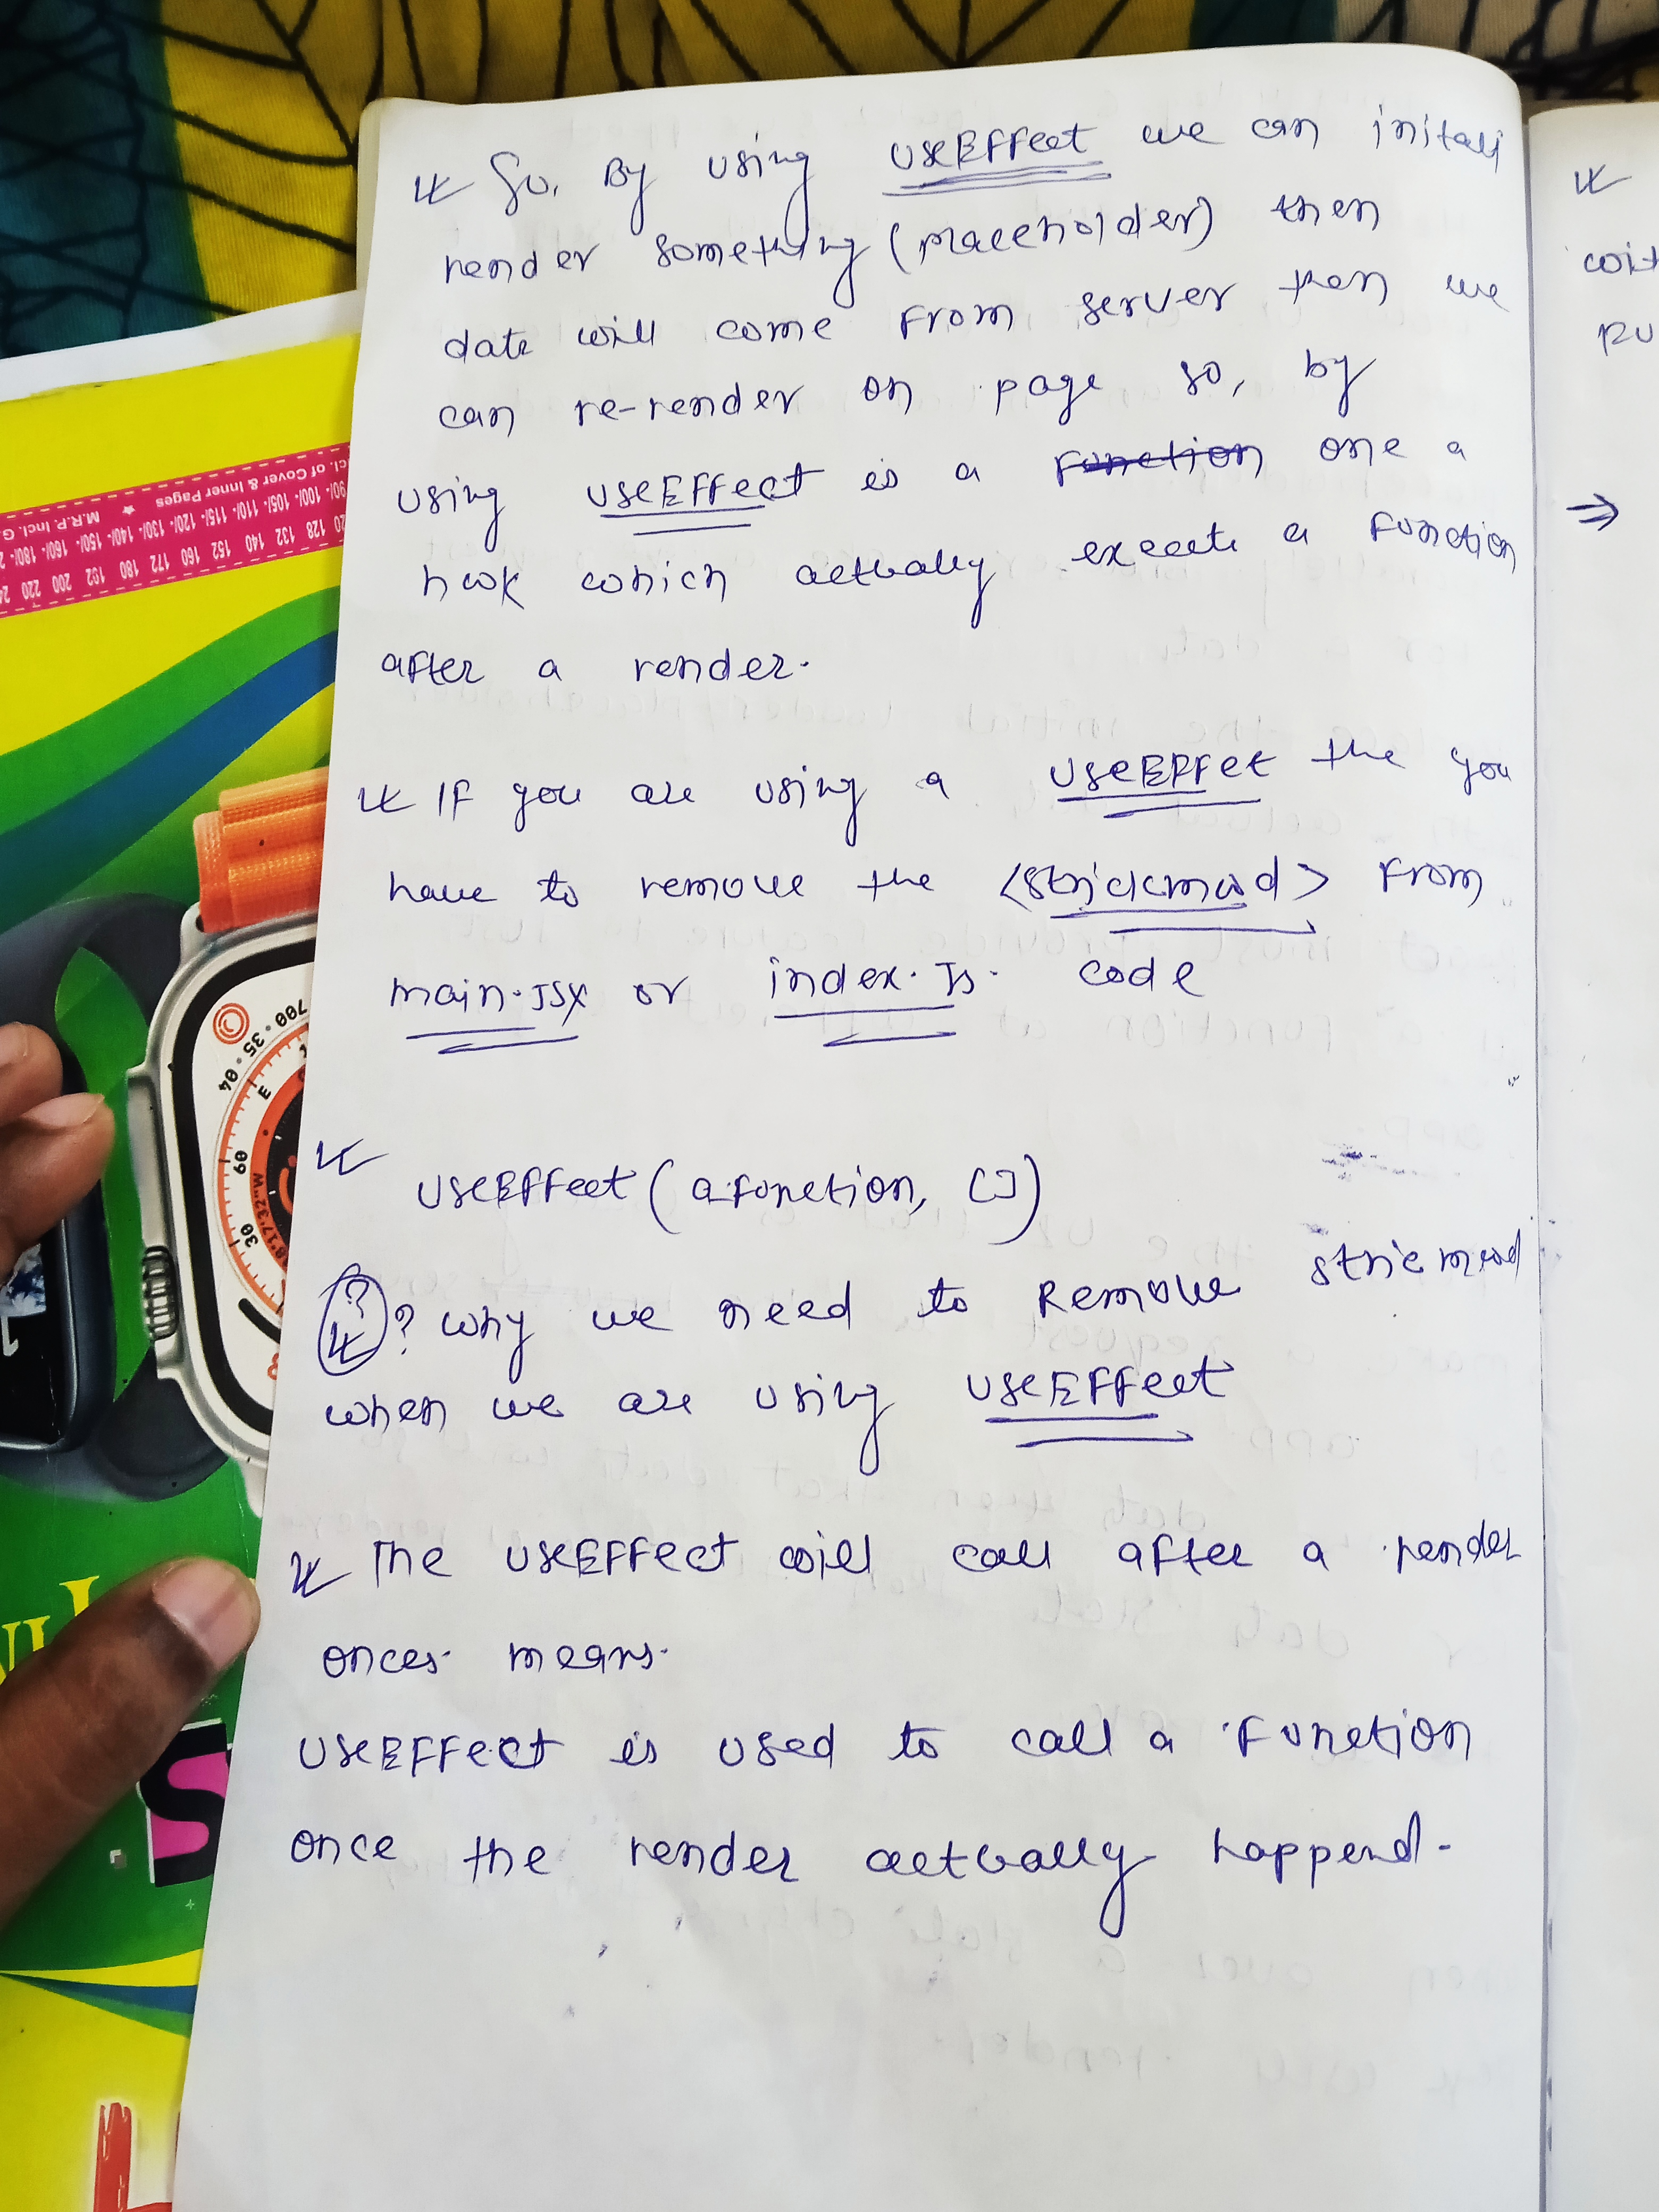 So, By using useEffect we can initaly
render something (placeholder) then
date will come from server then we
can re-render on page so, by
using useEffect is a function one a
hook which actually execute a function
after a render.
If you are using a useEffet the you
have to remove the <strickmod> from
main.jsx or index.Js. code
useEffect(a function, [])
? why we need to Remove stricmod
when we are using useEffect
The useEffect will call after a render
onces. means.
useEffect is used to call a function
once the render actually happend.
wit
M.R.P. Incl. of Cover & Inner Pages
90/- 100/- 105/- 110/- 115/- 120/- 130/- 140/- 150/- 160/- 180/-
120 128 132 140 152 160 172 180 192 200 220